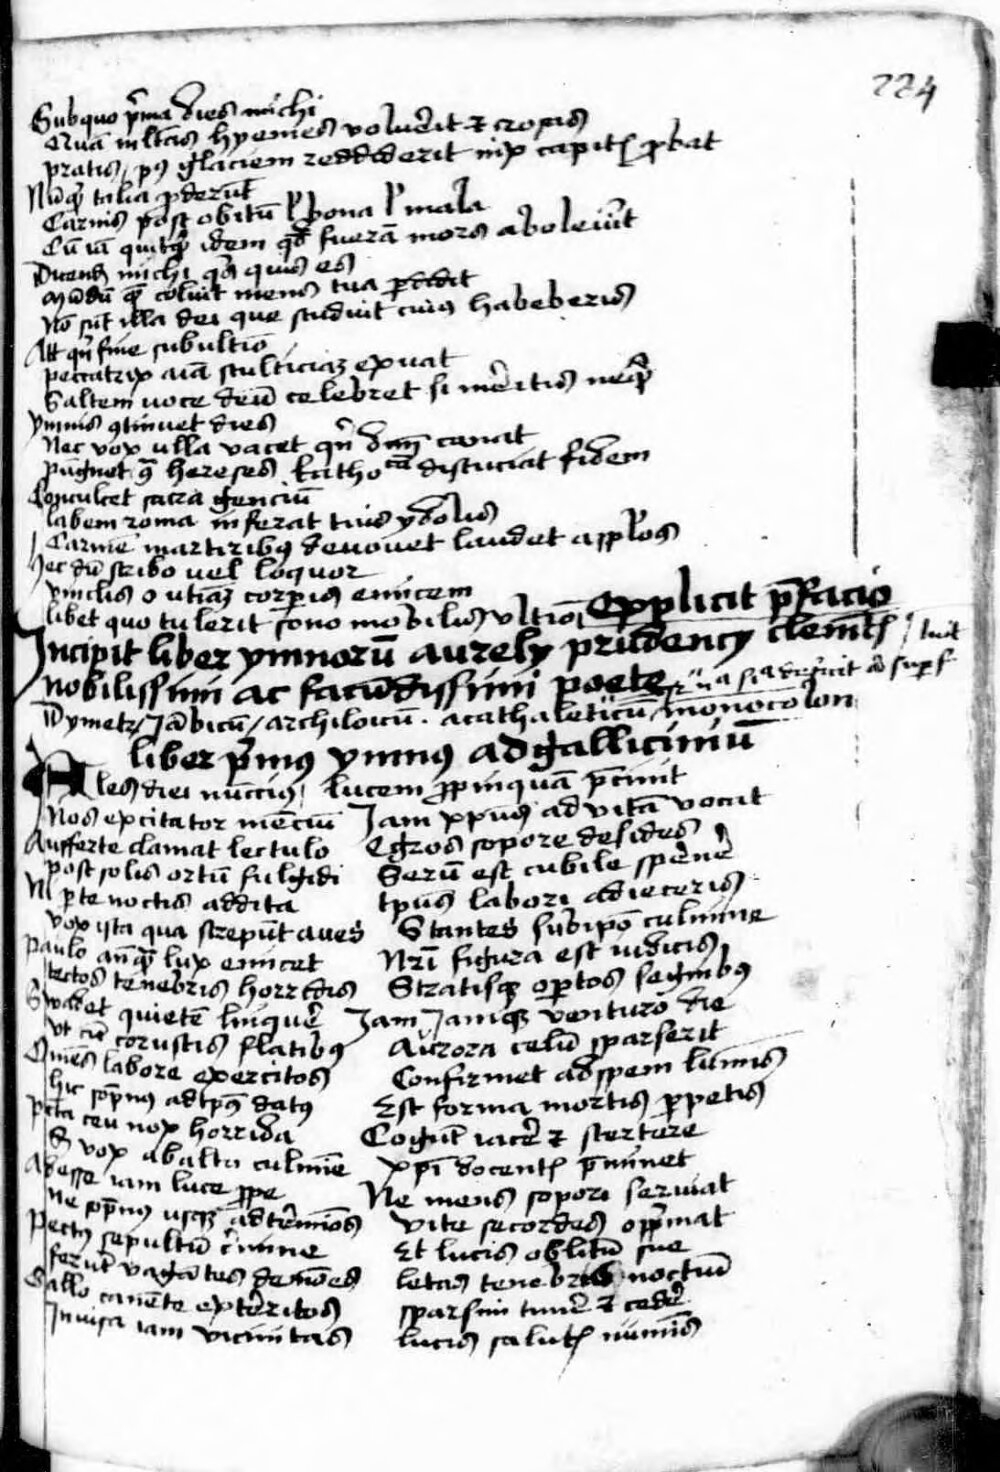 224
Sub quo p̄ma dies michi
Quā multas hyemes voluerit & rosas
pratis p9 glaciem reddiderit nix capit͛ p̱bat
Nūqͥ talia p̱derūt
Carnis post obitū l' bona l' mala
Cū iā quitqͥd idem qd̄ fuerā mors aboleūit
Dicend͛ michi q̄s quis es
Mūdū q̄ coluit mens tua p̱didit
Nō sūt illa dei que studuit cui9 habeberis
Att qn̄ fine sub ultīo
peccatrix aīa stulticiaꝫ exuat
Saltem uoce deū celebret si meritis neqͥ
ymnis ꝯtinuet dies
Nec vox ulla vacet qn̄ dm̄ canat
Pugnet ꝯ hereses katho^cā discuciat fidem
Conculcet sacra genciū
labem roma inferat tuis ydolis
Carmē martirib9 deuouet laudet apl'os
Hec dū scribo uel loquor
vinclis o utīaꝫ corp̱is emicem
libet quo tulerit sono mobilis ultīo Explicit p̄facio
Incipit liber ymnorū aurelÿ prudencÿ clemēt͛
nobilissimi ac facūdissimi poete
Dymetr̄ / Iābicū / archiloicū . acathaleticū / monocolon
liber p̄m9 ymn9 ad gallicinıū
Ales diei nūcci9 lucem p̱pinquā p̄cinit
Nos excitator mēciū Iam xp̄us ad vitā vocat
Aufferte clamat lectulo Egros sopore desides
post solis ortū fulgidi Serū est cubile sp̱nē
Ni p̱te noctis addita tp̄us labori adieceris
vox ista qua strepūt aues Stantes sub ipō culmine
Paulo an̄qͣ lux emicet Nr̄i figura est iudicis
tectos tenebris horridis Stratisqꝫ op̱tos segnib9
Swadet quietē linquē Iam Iamqꝫ venturo die
vt cū coruscis flatib9 Aurora celū sparserit
Om̄es labore exercitos Confirmet ad spem lūmis
hic sop̄n9 ad tp̄9 dat9 Est forma mortis p̱petis
Pct̄a ceu nox horrida Cogūt iacē & stertere
S͛ vox ab alto culmīe xp̄i docent͛ p̄monet
Adesse iam luce p̱pe Ne mens sopori seruiat
ne sop̄n9 usqꝫ ad t̄mīos vite secordes opp̄mat
Pect9 sepultū c̄mine Et lucis oblitū sue
ferūt vagātes demōes letas tenebris noctiū
Gallo canēte ext̄ritos sparsim timē & cedē
Inuisa iam vicinitas lucis salut͛ numīs